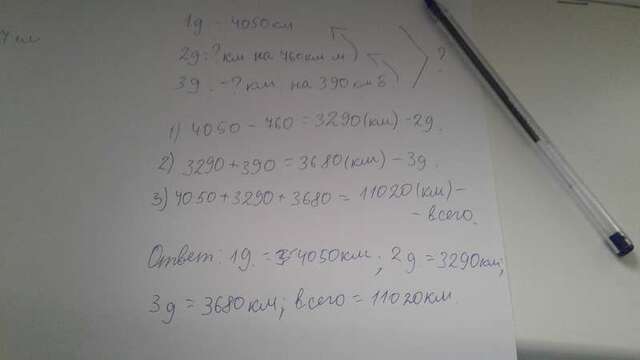 1д - 4050 км
2д - ? км на 760 км м
3д. - ? км. на 390 км б
?
1) 4050 - 760 = 3290 (км) - 2д.
2) 3290 + 390 = 3680 (км) - 3д.
3) 4050 + 3290 + 3680 = 11020 (км) -
- всего.
Ответ: 1д. = 4050 км; 2д = 3290 км;
3д = 3680 км; всего = 11020 км.